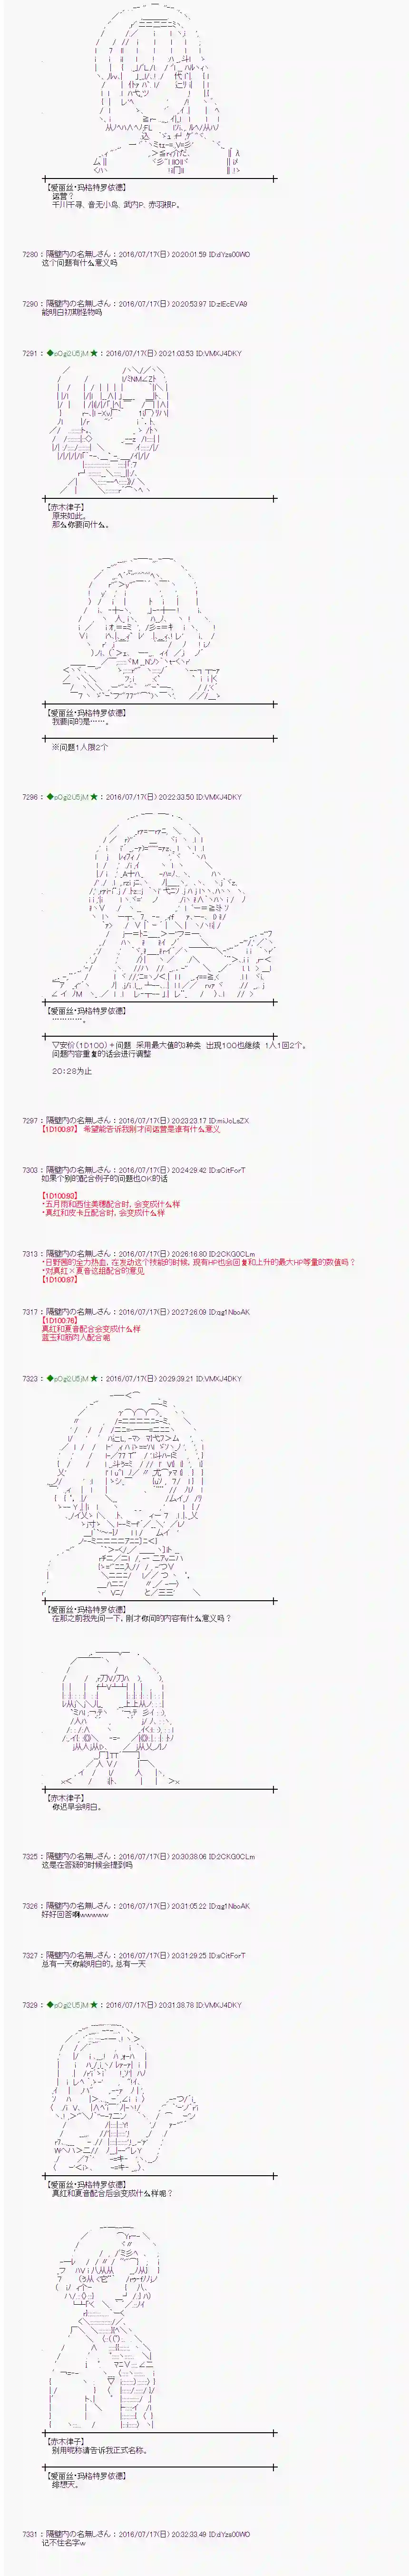 【爱丽丝・玛格特罗依德】
运营？
千川千寻、音无小鸟、武内P、赤羽根P。
7280 : 隔壁内の名無しさん : 2016/07/17(日) 20:20:01.59 ID:dYzs00WO
这个问题有什么意义吗
7290 : 隔壁内の名無しさん : 2016/07/17(日) 20:20:53.97 ID:zIEcEVA9
能明白初期怪物吗
7291 : ◆sOgi2U5jM ★ : 2016/07/17(日) 20:21:03.53 ID:VMXJ4DKY
【赤木律子】
原来如此。
那么你要问什么。
【爱丽丝・玛格特罗依德】
我要问的是……。
※问题1人限2个
7296 : ◆sOgi2U5jM ★ : 2016/07/17(日) 20:22:33.50 ID:VMXJ4DKY
【爱丽丝・玛格特罗依德】
…………。
▽安价（1D100）＋问题　采用最大值的3种类　出现100也继续　1人1回2个。
问题内容重复的话会进行调整
20：28为止
7297 : 隔壁内の名無しさん : 2016/07/17(日) 20:23:23.17 ID:miJoLsZX
【1D100:97】 希望能告诉我刚才问运营是谁有什么意义
7303 : 隔壁内の名無しさん : 2016/07/17(日) 20:24:29.42 ID:sCitForT
如果个别的配合例子的问题也OK的话
【1D100:93】
・五月雨和西住美穗配合时，会变成什么样
・真红和皮卡丘配合时，会变成什么样
7313 : 隔壁内の名無しさん : 2016/07/17(日) 20:26:16.80 ID:2CKG0CLm
・日野茜的全力热血，在发动这个技能的时候，现有HP也会回复和上升的最大HP等量的数值吗？
・对真红×夏音这组配合的意见
【1D100:87】
7317 : 隔壁内の名無しさん : 2016/07/17(日) 20:27:26.09 ID:qg1NboAK
【1D100:76】
真红和夏音配合会变成什么样
蓝玉和筋肉人配合呢
7323 : ◆sOgi2U5jM ★ : 2016/07/17(日) 20:29:39.21 ID:VMXJ4DKY
【爱丽丝・玛格特罗依德】
在那之前我先问一下，刚才你问的内容有什么意义吗？
【赤木律子】
你迟早会明白。
7325 : 隔壁内の名無しさん : 2016/07/17(日) 20:30:38.06 ID:2CKG0CLm
这是在答疑的时候会提到吗
7326 : 隔壁内の名無しさん : 2016/07/17(日) 20:31:05.22 ID:qg1NboAK
好好回答啊wwwww
7327 : 隔壁内の名無しさん : 2016/07/17(日) 20:31:29.25 ID:sCitForT
总有一天你能明白的。总有一天
7329 : ◆sOgi2U5jM ★ : 2016/07/17(日) 20:31:38.78 ID:VMXJ4DKY
【爱丽丝・玛格特罗依德】
真红和夏音配合后会变成什么样呢？
【赤木律子】
别用昵称请告诉我正式名称。
【爱丽丝・玛格特罗依德】
绯想天。
7331 : 隔壁内の名無しさん : 2016/07/17(日) 20:32:33.49 ID:dYzs00WO
记不住名字w